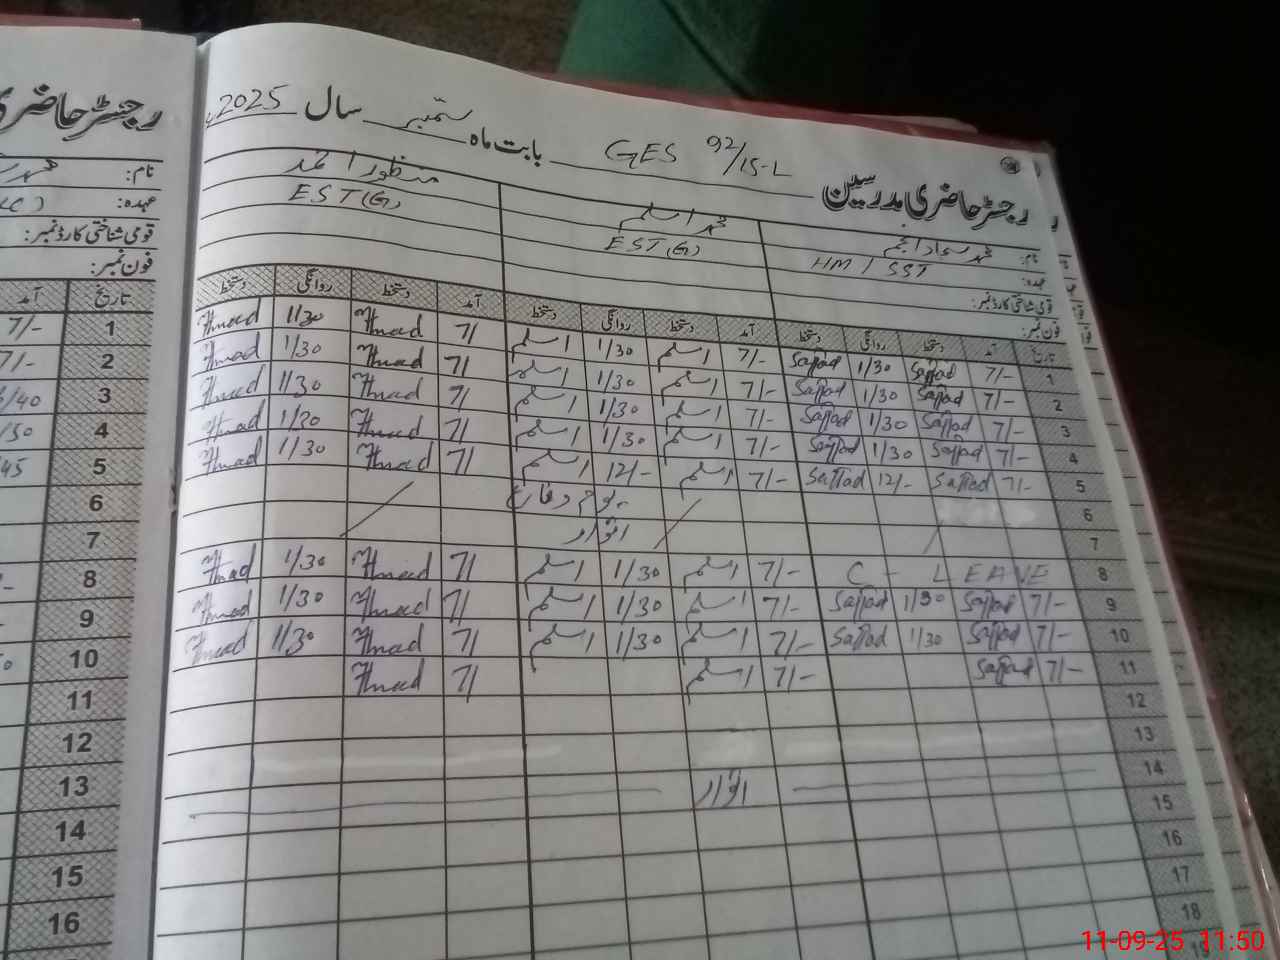 رجسٹر حاضری مدرسین GES 92/15-L بابت ماہ ستمبر سال 2025ء
نام: محمد سجاد انجم محمد اسلم منظور احمد
عہدہ: HM / SST EST(G) EST(G)
قومی شناختی کارڈ نمبر:
فون نمبر:
تاریخ آمد دستخط روانگی دستخط آمد دستخط روانگی دستخط آمد دستخط روانگی دستخط
1 7/- Sajjad 1/30 Sajjad 7/- اسلم 1/30 اسلم 7/ Ahmad 1/30 Ahmad
2 7/- Sajjad 1/30 Sajjad 7/- اسلم 1/30 اسلم 7/ Ahmad 1/30 Ahmad
3 7/- Sajjad 1/30 Sajjad 7/- اسلم 1/30 اسلم 7/ Ahmad 1/30 Ahmad
4 7/- Sajjad 1/30 Sajjad 7/- اسلم 1/30 اسلم 7/ Ahmad 1/30 Ahmad
5 7/- Sajjad 12/- Sajjad 7/- اسلم 12/- اسلم 7/ Ahmad 1/30 Ahmad
6 یوم دفاع
7 اتوار
8 C - LEAVE 7/- اسلم 1/30 اسلم 7/ Ahmad 1/30 Ahmad
9 7/- Sajjad 1/30 Sajjad 7/- اسلم 1/30 اسلم 7/ Ahmad 1/30 Ahmad
10 7/- Sajjad 1/30 Sajjad 7/- اسلم 1/30 اسلم 7/ Ahmad 1/30 Ahmad
11 7/- Sajjad 7/- اسلم 7/ Ahmad
12
13
14 اتوار
15
16
17
18
19
رجسٹر حاضری
نام: محمد
عہدہ:
قومی شناختی کارڈ نمبر:
فون نمبر:
تاریخ آمد
1 7/-
2 7/-
3 /40
4 /30
5 /45
6
7
8
9
10
11
12
13
14
15
16
11-09-25 11:50